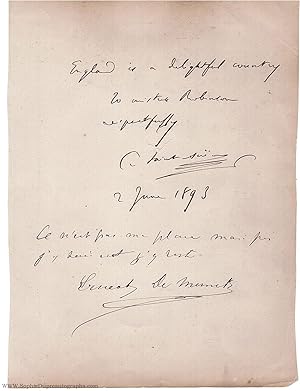 England is a delightful country
To mister Robinson
respectfully
C. Saint-Saëns
2 June 1893
Ce n'est pas ma place mais
j'y j'y reste
Ernest De Munck
www.SophieDupreautographs.com